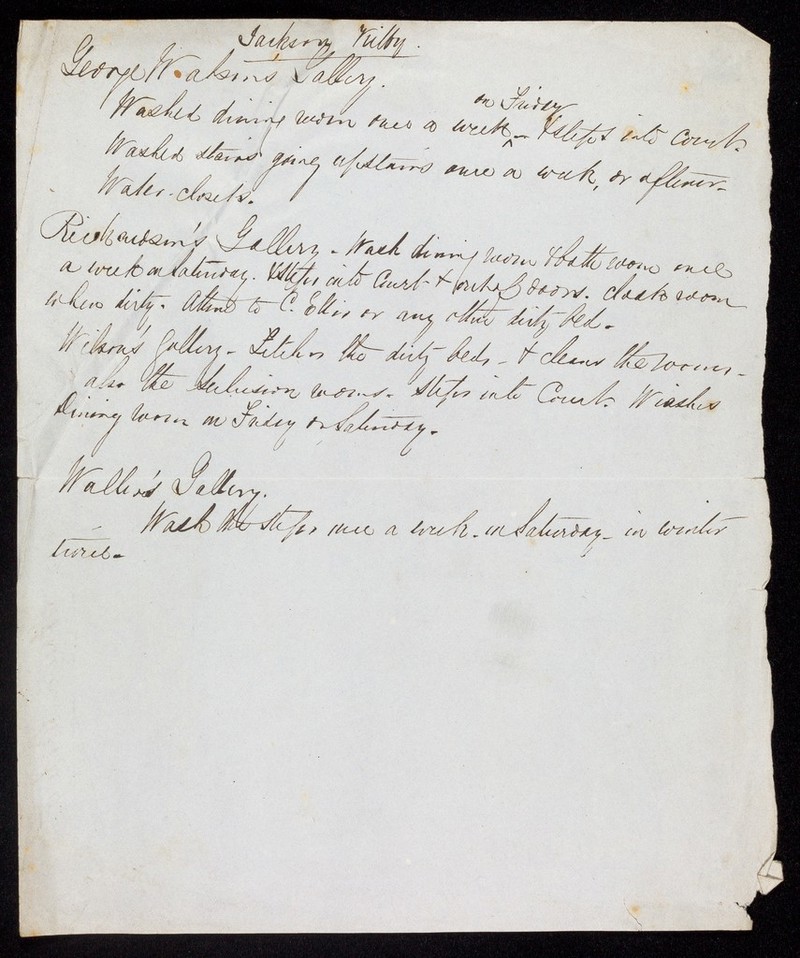 Jackson Kilby.
George Watson's Gallery.
Washed dining room once a week ^ on Friday - & steps into Court.
Washed stairs going upstairs once a week, or oftener.
Water-closets.
Richardson's Gallery - Wash dining room & bath room once
a week on Saturday. & steps into Court + out of doors. cloak room
when dirty. Attend to C. Ellis or any other dirty bed.
Wilson's Gallery - Fetches the dirty beds - + cleans the rooms -
also the seclusion rooms. steps into Court. Washes
Dining room on Friday or Saturday.
Waller's Gallery.
Wash the steps once a week - on Saturday - in winter
time -